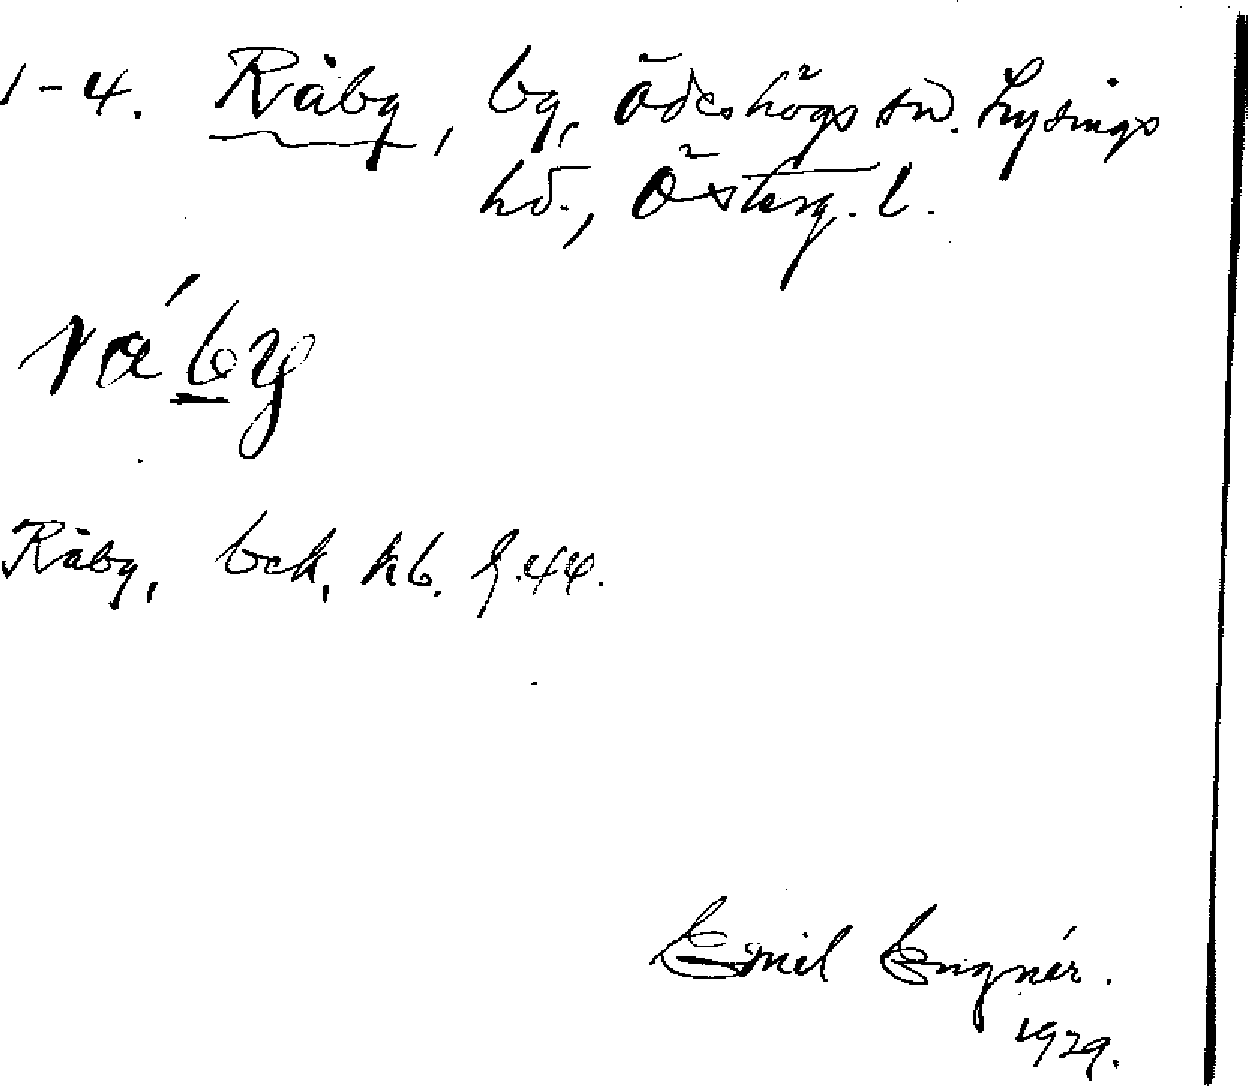 1-4. Råby, by, Ödeshögs sn. Lysings
hd., Österg. l.
rá by
Råby, bek, kb. f. 44.
Emil Engnér.
1929.